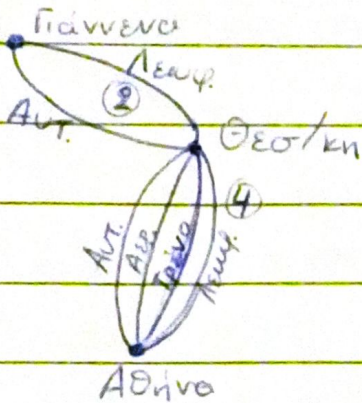 Γιάννενα
Λεωφ.
②
Αυτ.
Θεσ/κη
④
Αυτ.
Αερ.
Τρένο
Λεωφ.
Αθήνα